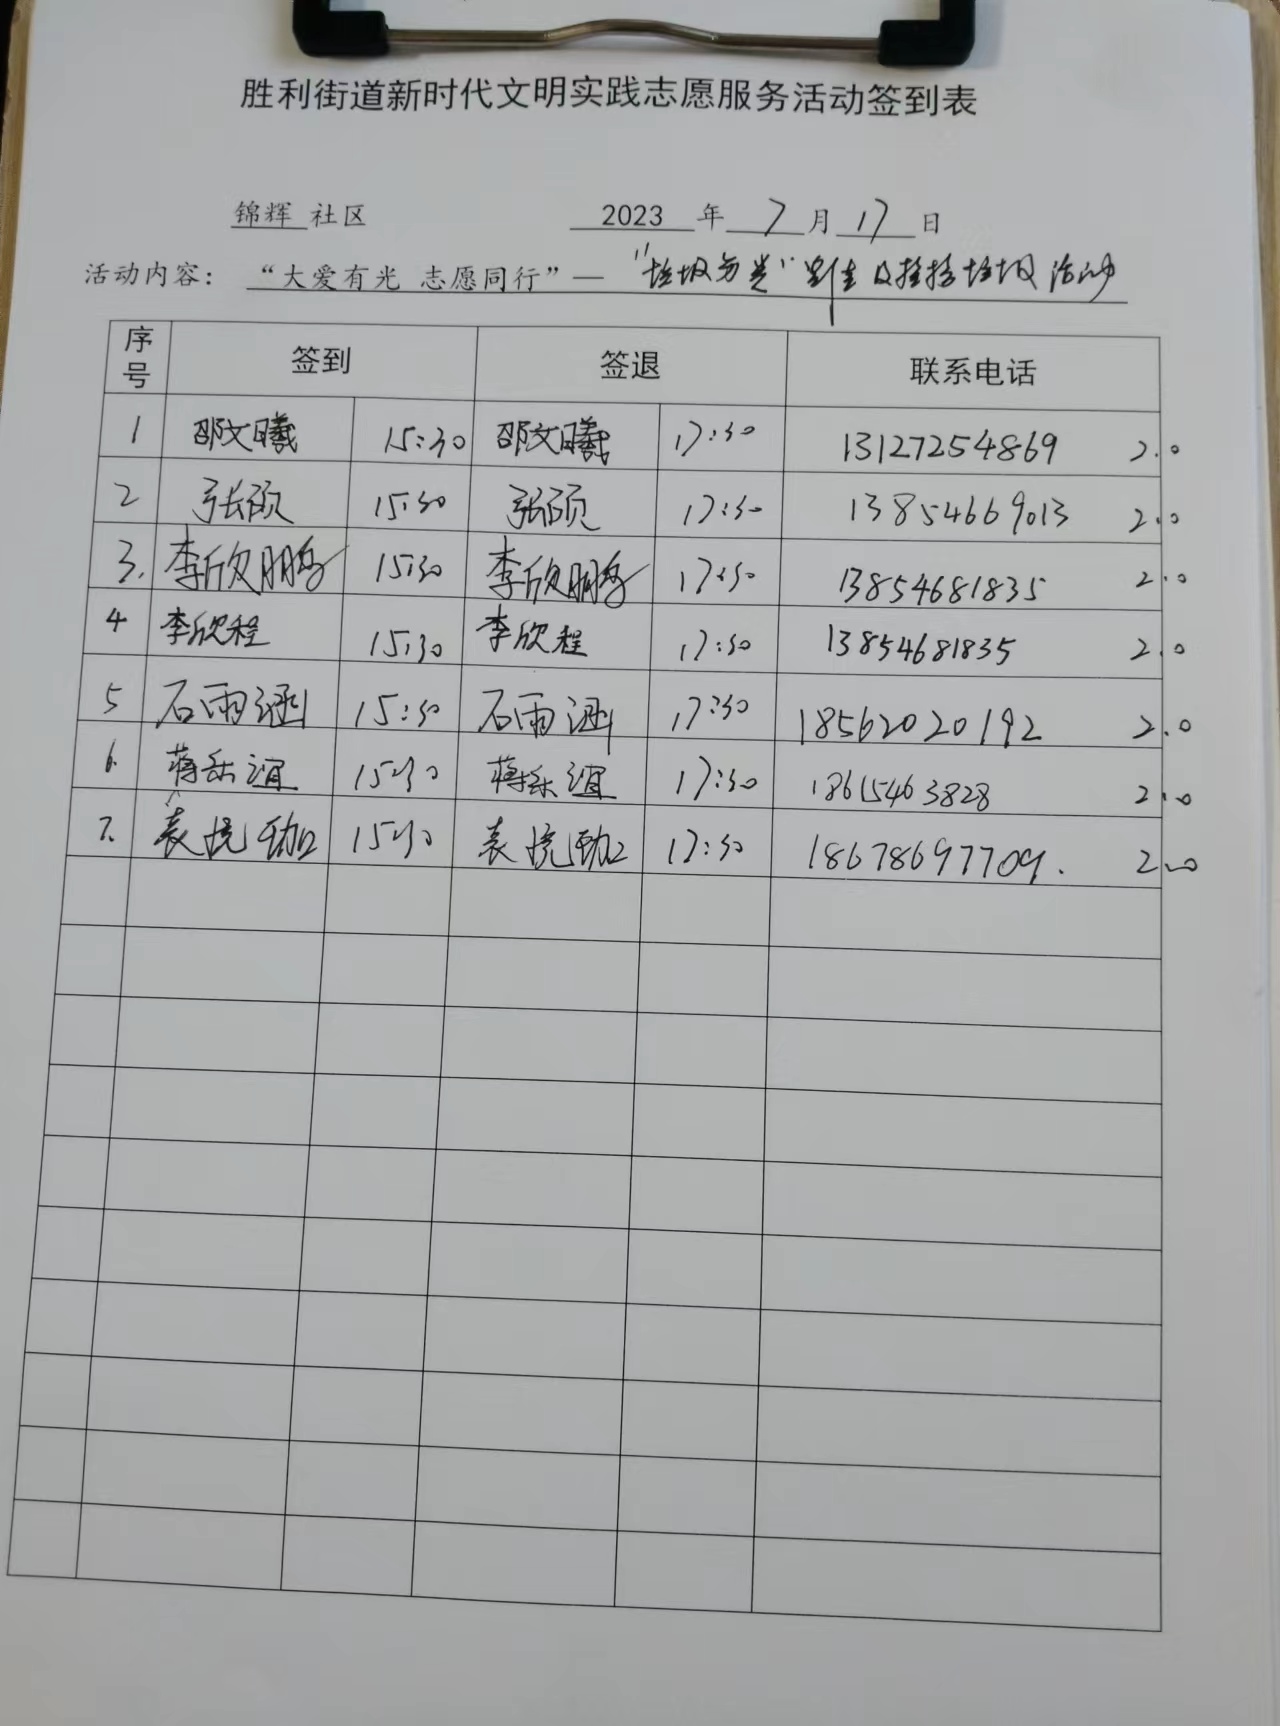 胜利街道新时代文明实践志愿服务活动签到表
锦辉 社区 2023 年 7 月 17 日
活动内容： “大爱有光 志愿同行”— “垃圾分类” 及捡拾垃圾活动
序号 签到 签退 联系电话
1 邵文曦 15:30 邵文曦 17:30 13127254869 2.0
2 张硕 15:30 张硕 17:30 13854669013 2.0
3. 李欣鹏 15:30 李欣鹏 17:30 13854681835 2.0
4 李欣程 15:30 李欣程 17:30 13854681835 2.0
5 石雨涵 15:30 石雨涵 17:30 18562020192 2.0
6. 蒋乐谊 15:30 蒋乐谊 17:30 18615463828 2.0
7. 15:30 17:30 18678697709. 2.0